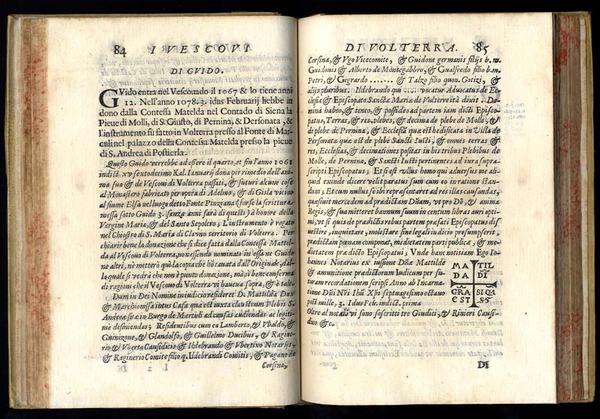 84 I VESCOVI
DI GUIDO.
GUido entra nel Vescouado il 1067 & lo tiene anni
12. Nell'anno 1078. 3. idus Februarij hebbe in
dono dalla Contessa Matelda nel Contado di Siena la
Pieue di Molli, di S. Giusto, di Pernina, & Dersonata, &
l'instrumento fu fatto in Volterra presso al Fonte di Mar-
culi nel palazzo della Contessa Matelda presso la pieue
di S. Andrea di Postierla.
Questo Guido verrebbe ad essere il quarto, et fin l'anno 1061
indict. XV sextodecimo Kal. Ianuarij dona per rimedio dell'ani
ma sua & de Vescoui di Volterra passati, & futuri alcune cose
al Monastero fabricato per opera di Adeluuo, & di Gisla vicino
al fiume Elsa nel luogo detto Fonte Pinzaria (forse la scrittura
messa sotto Guido 3. senza anni sarà di questi) à honore della
Vergine Maria, & del Santo Sepolcro; L'instrumento è rogato
nel Chiostro di S. Maria di territorio di Volterra. Per
chiarir bene la donazione che si dice fatta dalla Contessa Mattel-
da al Vescouo di Volterra, non essendo nominati in essa ne Guido
ne altri, nè metterò quì la copia che hò cauata dall'Originale, dal-
la quale si vedrà che non è punto donazione, mà sì bene conferma
di ragioni che il Vescouo di Volterra vi haueua sopra, & è tale.
Dum in Dei Nomine in iudicio resideret D. Mattilda Dux
& Marchionissa intus Casa que est iuxta claustrum Plebis S.
Andreæ sitæ in Burgo de Marturi ad causas audiendas ac legiti-
me definiendas; Residentibus cum ea Lamberto, & Vbaldo, &
Guinizone, & Glandolfo, & Guillelmo Ducibus, & Raginer-
io & Vberto Causidicis & Ildebrando & Vbertino Notarijs,
& Raginerio Comite filio q. Ildebrandi Comitis, & Pagano de
Corsina,
DI VOLTERRA. 85
Corsina, & Ugo Vicecomite, & Guidone germanis filijs b. m.
Guidonis & Alberto de Montegabbro, & Gualfredo filio bon.
Petri, & Gegrardo ....... & Talzo filio quon. Gotizi, &
alijs pluribus. Ildebrando qui .... vocatur Aduocatus de Ec-
clesia & Episcopatu Sanctæ Mariæ de Volterre ità dixit. Do-
mina habeo, & teneo, & possideo ad partem iam dicti Episcopatus,
Terras, & res, plebes, & decima de plebe de Molle, &
de plebe de Pernina, & Ecclesiâ que est hedificata in Vicla de
Persenata que est de plebe Sancti Iusti, & omnes terras &
res, Ecclesias, & decimationes positas in his tribus Plebibus de
Molle, de Pernina & Sancti Iusti pertinentes ad iura supra-
scripti Episcopatus; Et si est vllus homo qui aduersus me ali-
quid exinde dicere vult paratus sum cum eo in ratione stan-
dum; Et cum nullus ibi reperiretur cui essent nullas res causatiuas,
quæsiuit mercedem ad prædictam Dñam, vt pro Dõ, & anima
Regis, & sua mitteret bannum suum in centum libras auri opti-
mi, vt si quis de prædictis rebus partem præfati Episcopatus dif-
uestire, inquietare, molestare sine legali iudicio presumpserit,
prædictam pœnam componat, medietatem parti publicæ, & me-
dietatem prædicto Episcopatui; Vnde hanc notitiam Ego Io-
hannes Notarius ex iussione Dñæ Mathildę
& amunitione prædictorum Iudicum per sut-
uram recordationem scripsi Anno ab Incarnat-
ione Dñi Nri Ihū Xpi septuagesimo octauo
post mille, 3. Idus Feb. indict. prima
Oltre al notaio vi sono soscritti tre Giudici, & Rinieri Causi-
dico &c.
MA TIL
DA DI
GRA SIQI
C EST SS
DI